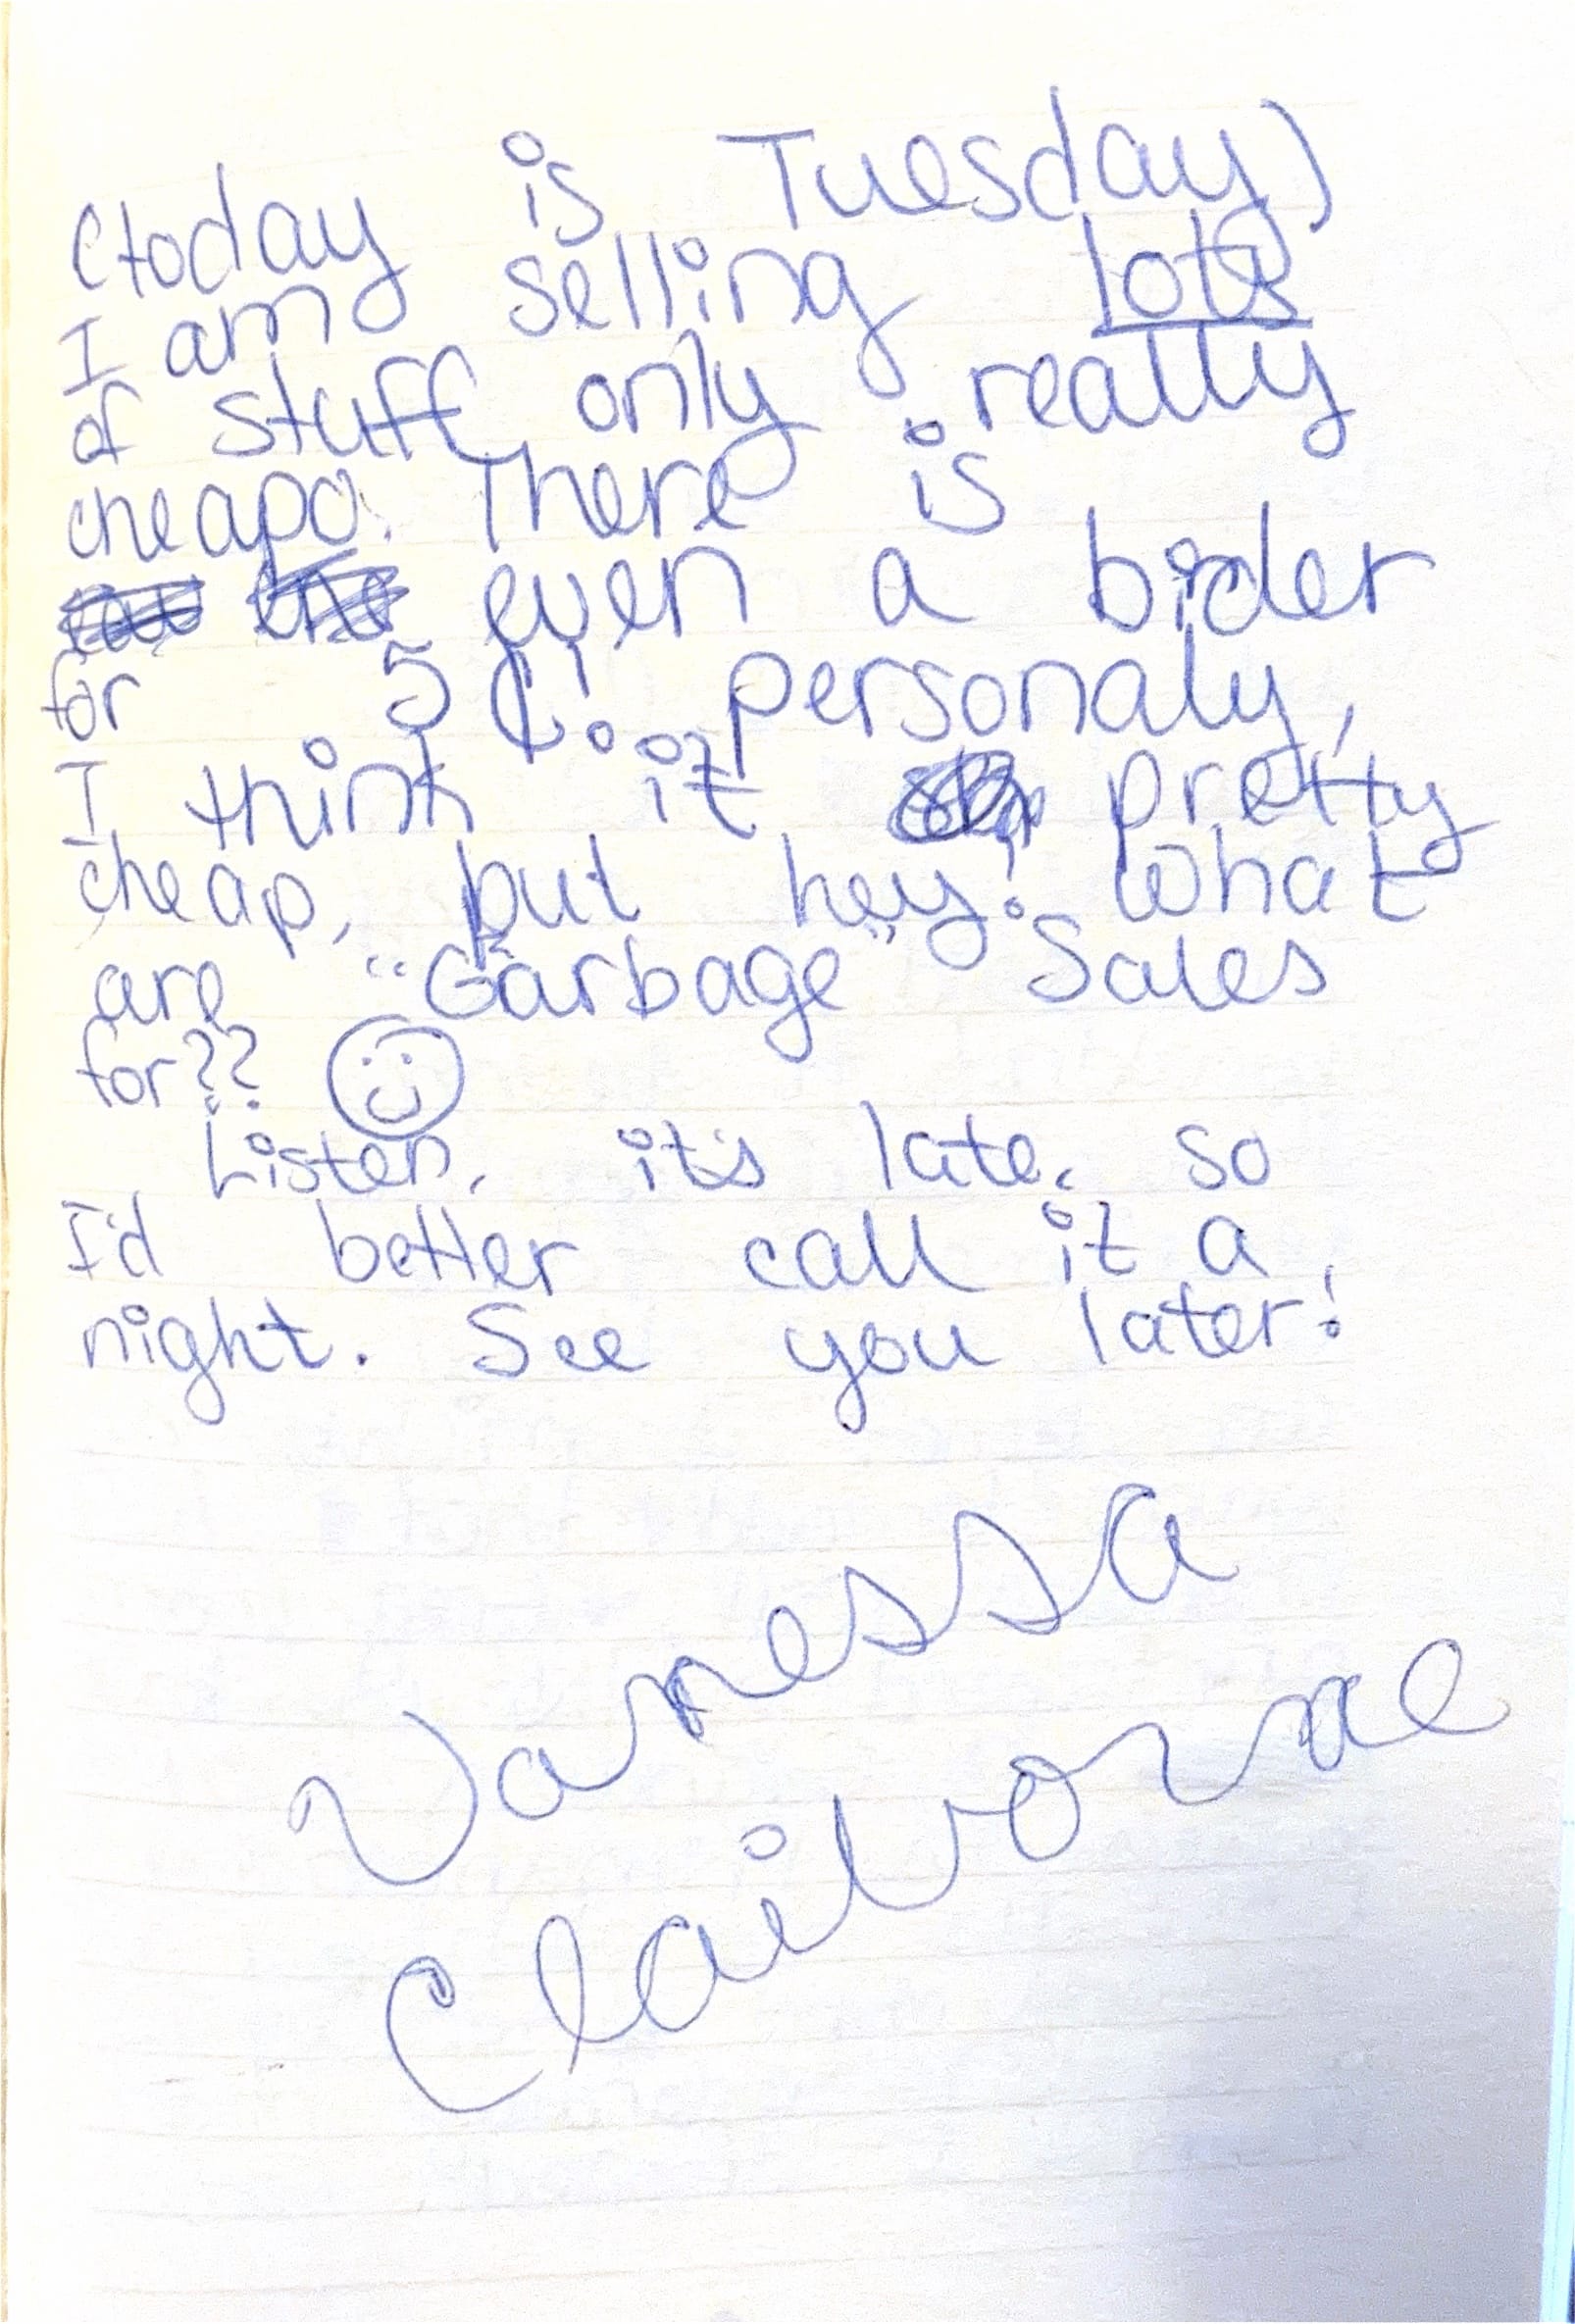 (today is Tuesday)
I am selling lots
of stuff, only really
cheapo. There is
even a bider
for 5¢! personaly,
I think it pretty
cheap, but hey! What
are "Garbage" Sales
for??
Listen, it's late, so
I'd better call it a
night. See you later!
Vanessa
Claiborne